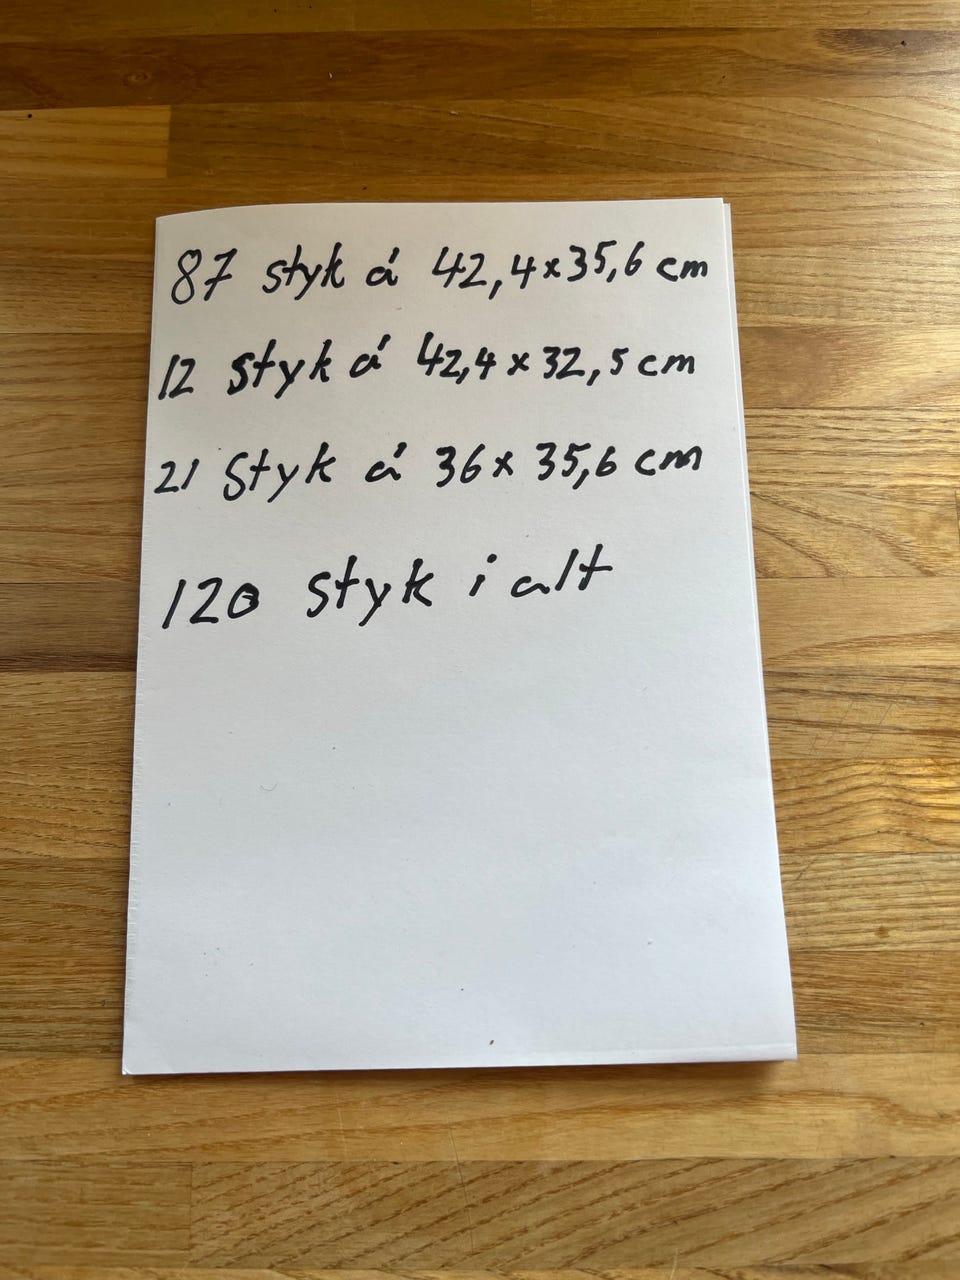 87 styk á 42,4x35,6 cm
12 styk á 42,4 x 32,5 cm
21 styk á 36x 35,6 cm
120 styk i alt